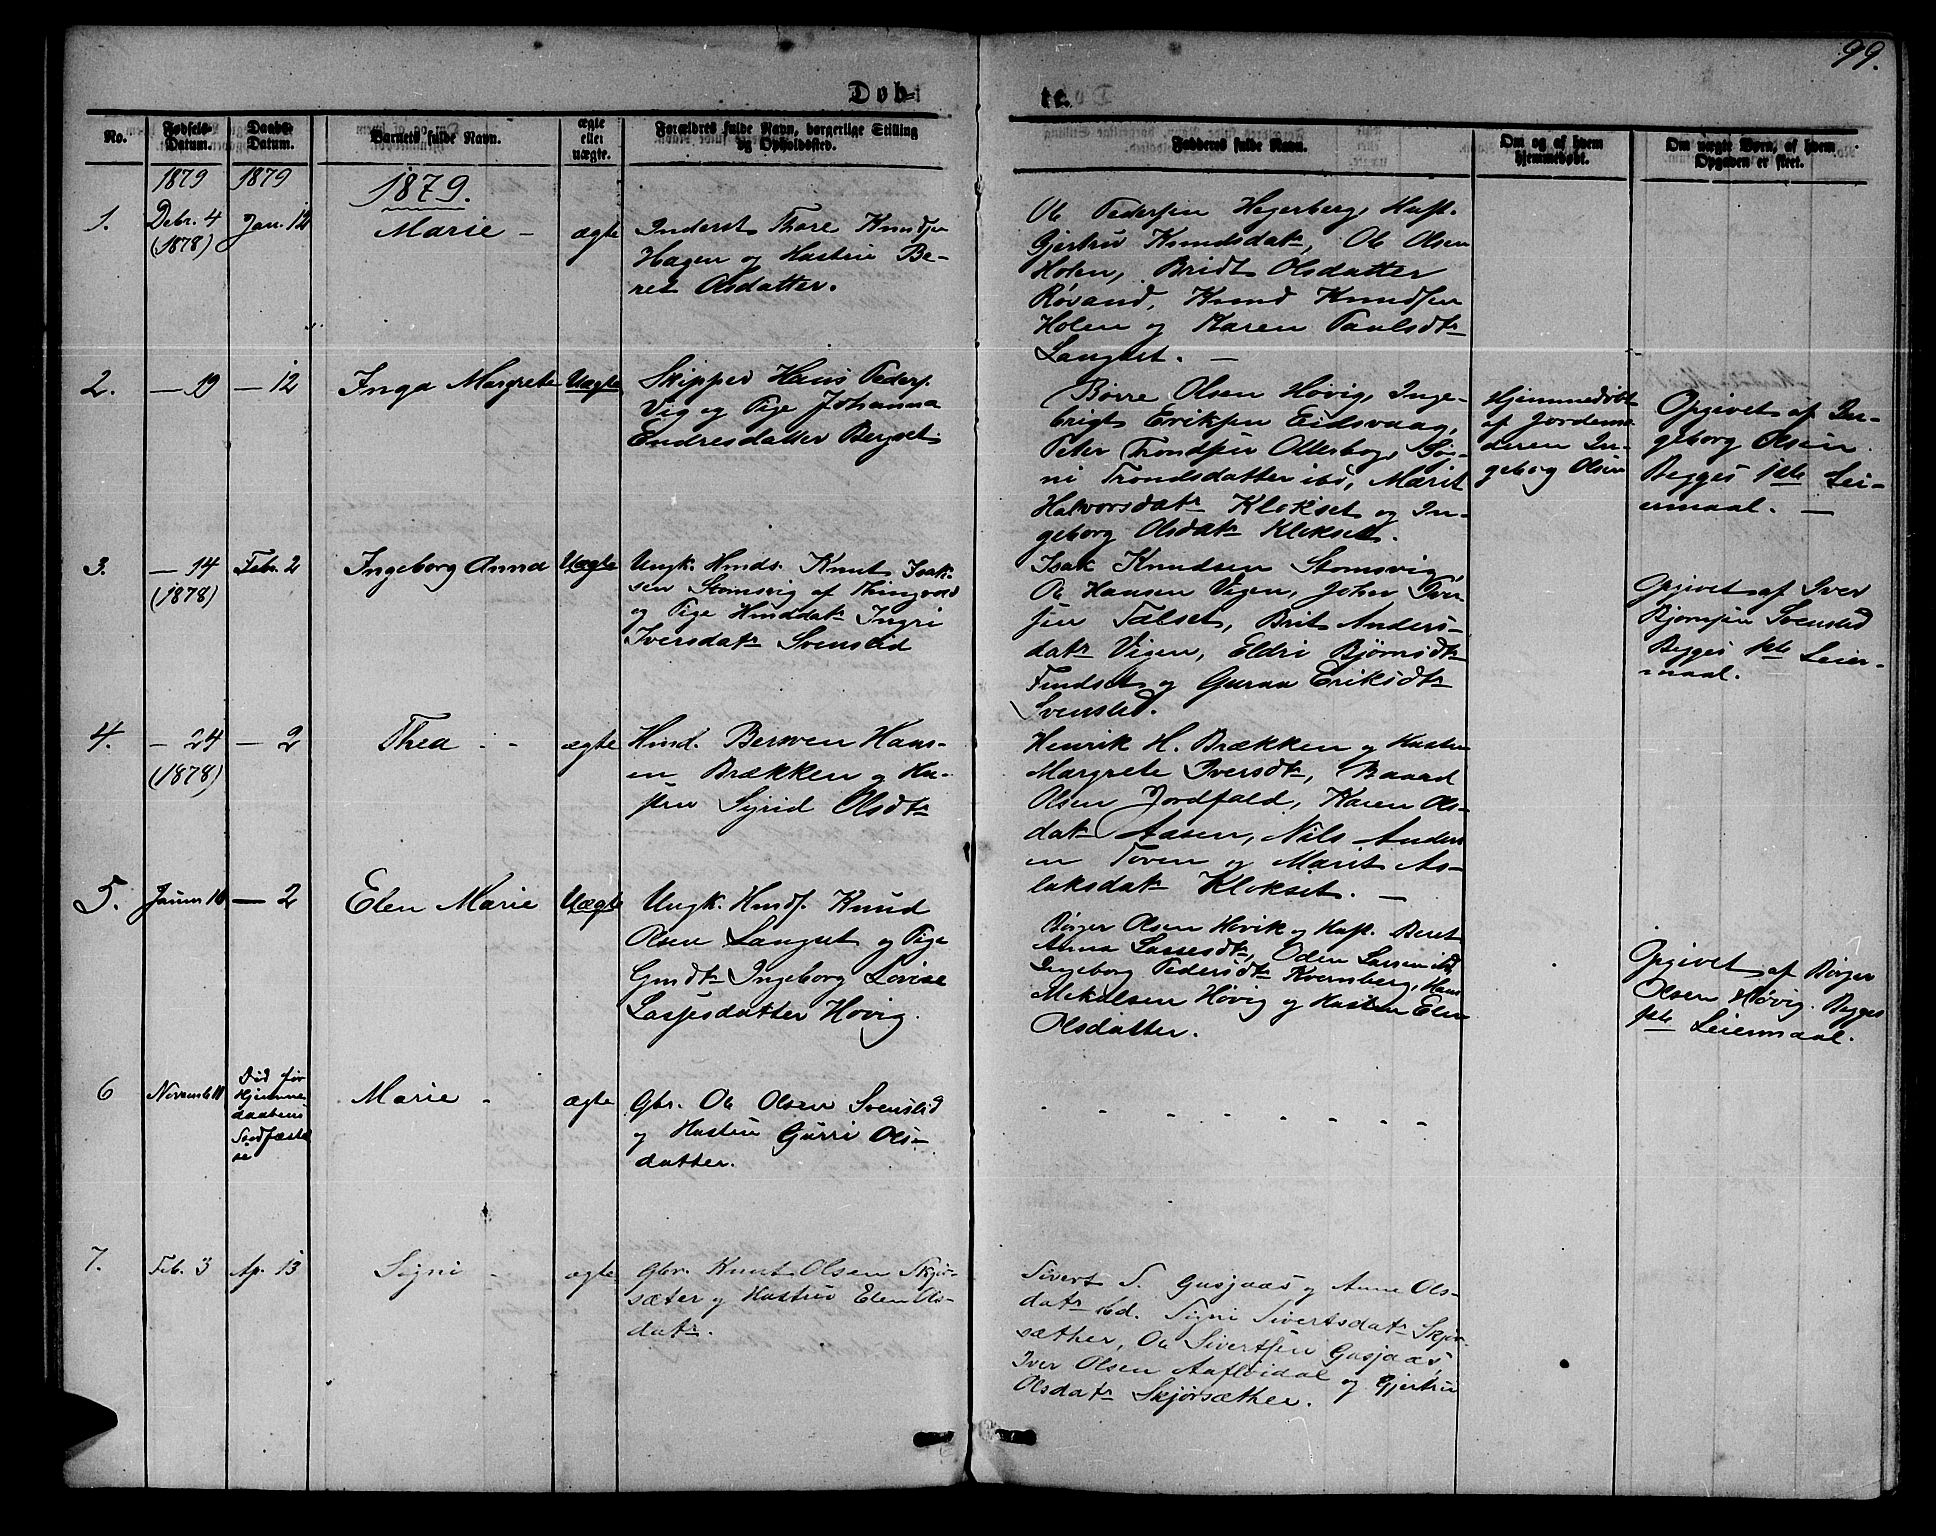 99.
Døb-
te.
No.
Fødsels-
Datum.
Daabs-
Datum.
Barnets fulde Navn.
ægte
eller
uægte.
Forældres fulde Navn, borgerlige Stilling
og Opholdssted.
Fadderes fulde Navn.
Om og af hvem
hjemmedøbt.
Om uægte Børn, af hvem
Opgaven er skeet.
1879
1879
1879.
1.
Debr. 4
(1878)
Jan. 12
Marie -
ægte
Inderst Thore Knudsen
Hagen og Hustru Be-
ret Olsdatter.
Ole Pedersen Hegerberg, Hust.
Gjertru Knudsdatr, Ole Olsen
Holen, Bridt Olsdatter
Røvand, Knud Knudsen
Holen og Karen Paulsdtr
Langset. -
2.
- 19
- 12
Inga Margrete
Uægte
Skipper Hans Peders.
Vig og Pige Johanna
Endresdatter Bergset
Børre Olsen Høvig, Inge-
brigt Eriksen Eidsvaag,
Peter Trondsen Ollerbog, Gø-
ni Trondsdatter ibd, Marit
Halvorsdatr Klokset og In-
geborg Olsdatr Klokset.
Hjemmedøbt
af Jordemo
deren In-
geborg Olsen
Opgivet af In-
geborg Olsen.
Begges 1ste Lei-
ermaal. -
3.
- 14
(1878)
Febr. 2
Ingeborg Anna
Uægte
Ungk. Hmds. Knut Isak-
sen Stomsvig af Thingvold
og Pige Hmddatr Ingri
Iversdatr Svenslid
Isak Knudsen Stomsvig,
Ole Hansen Vigen, John Iver-
sen Talset, Brit Anders-
datr Vigen, Eldri Bjørnsdtr
Findset og Guraa Eriksdtr
Svenslid.
Opgivet af Iver
Bjørnsen Svenslid
Begges 1ste Leier-
maal.
4.
- 24
(1878)
- 2
Thea - -
ægte
Hmd. Berven Hans-
en Brækken og Hu-
stru Sigrid Olsdtr
Henrik H. Brækken og Hustru
Margrete Iversdtr, Baard
Olsen Jordfald, Karen Ols-
datr Aasen, Nils Anders
en Toven og Marit As-
laksdatr Klokset. -
5.
Januar 16
- 2
Elen Marie
Uægte
Ungk. Hmds. Knud
Olsen Langset og Pige
Gmdtr Ingeborg Lovise
Lassesdatter Høvig.
Børger Olsen Høvik og Hust. Beret
Anna Lassesdtr, Oden Larsen ibd,
Ingeborg Pedersdtr Kvernberg, Hans
Mikalsen Høvig og Hustru Elen
Olsdatter.
Opgivet af Børger
Olsen Høvig. Begges
1ste Leiermaal.
6
Novemb 11
Død før
Hjemme
daabens
Stadfæstel
se
Marie -
ægte
Gbr. Ole Olsen Svenslid
og Hustru Gurri Ols-
datter.
7.
Feb. 3
Ap. 13
Signi -
ægte
Gbr. Knut Olsen Skjør-
sæter og Hustru Elen Ols-
datr.
Sivert S. Gusjaas og Anne Ols-
datr ibd. Signi Sivertsdatr Skjør-
sæther, Ole Sivertsen Gusjaas,
Iver Olsen Aafløidal og Gjertru
Olsdatr Skjørsæther.